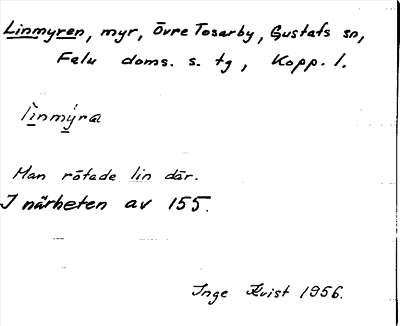 Linmyren, myr, Övre Tosarby, Gustafs sn,
Falu doms. s. tg, Kopp. l.
lìnmýra
Man rötade lin där.
I närheten av 155.
Inge Kvist 1956.